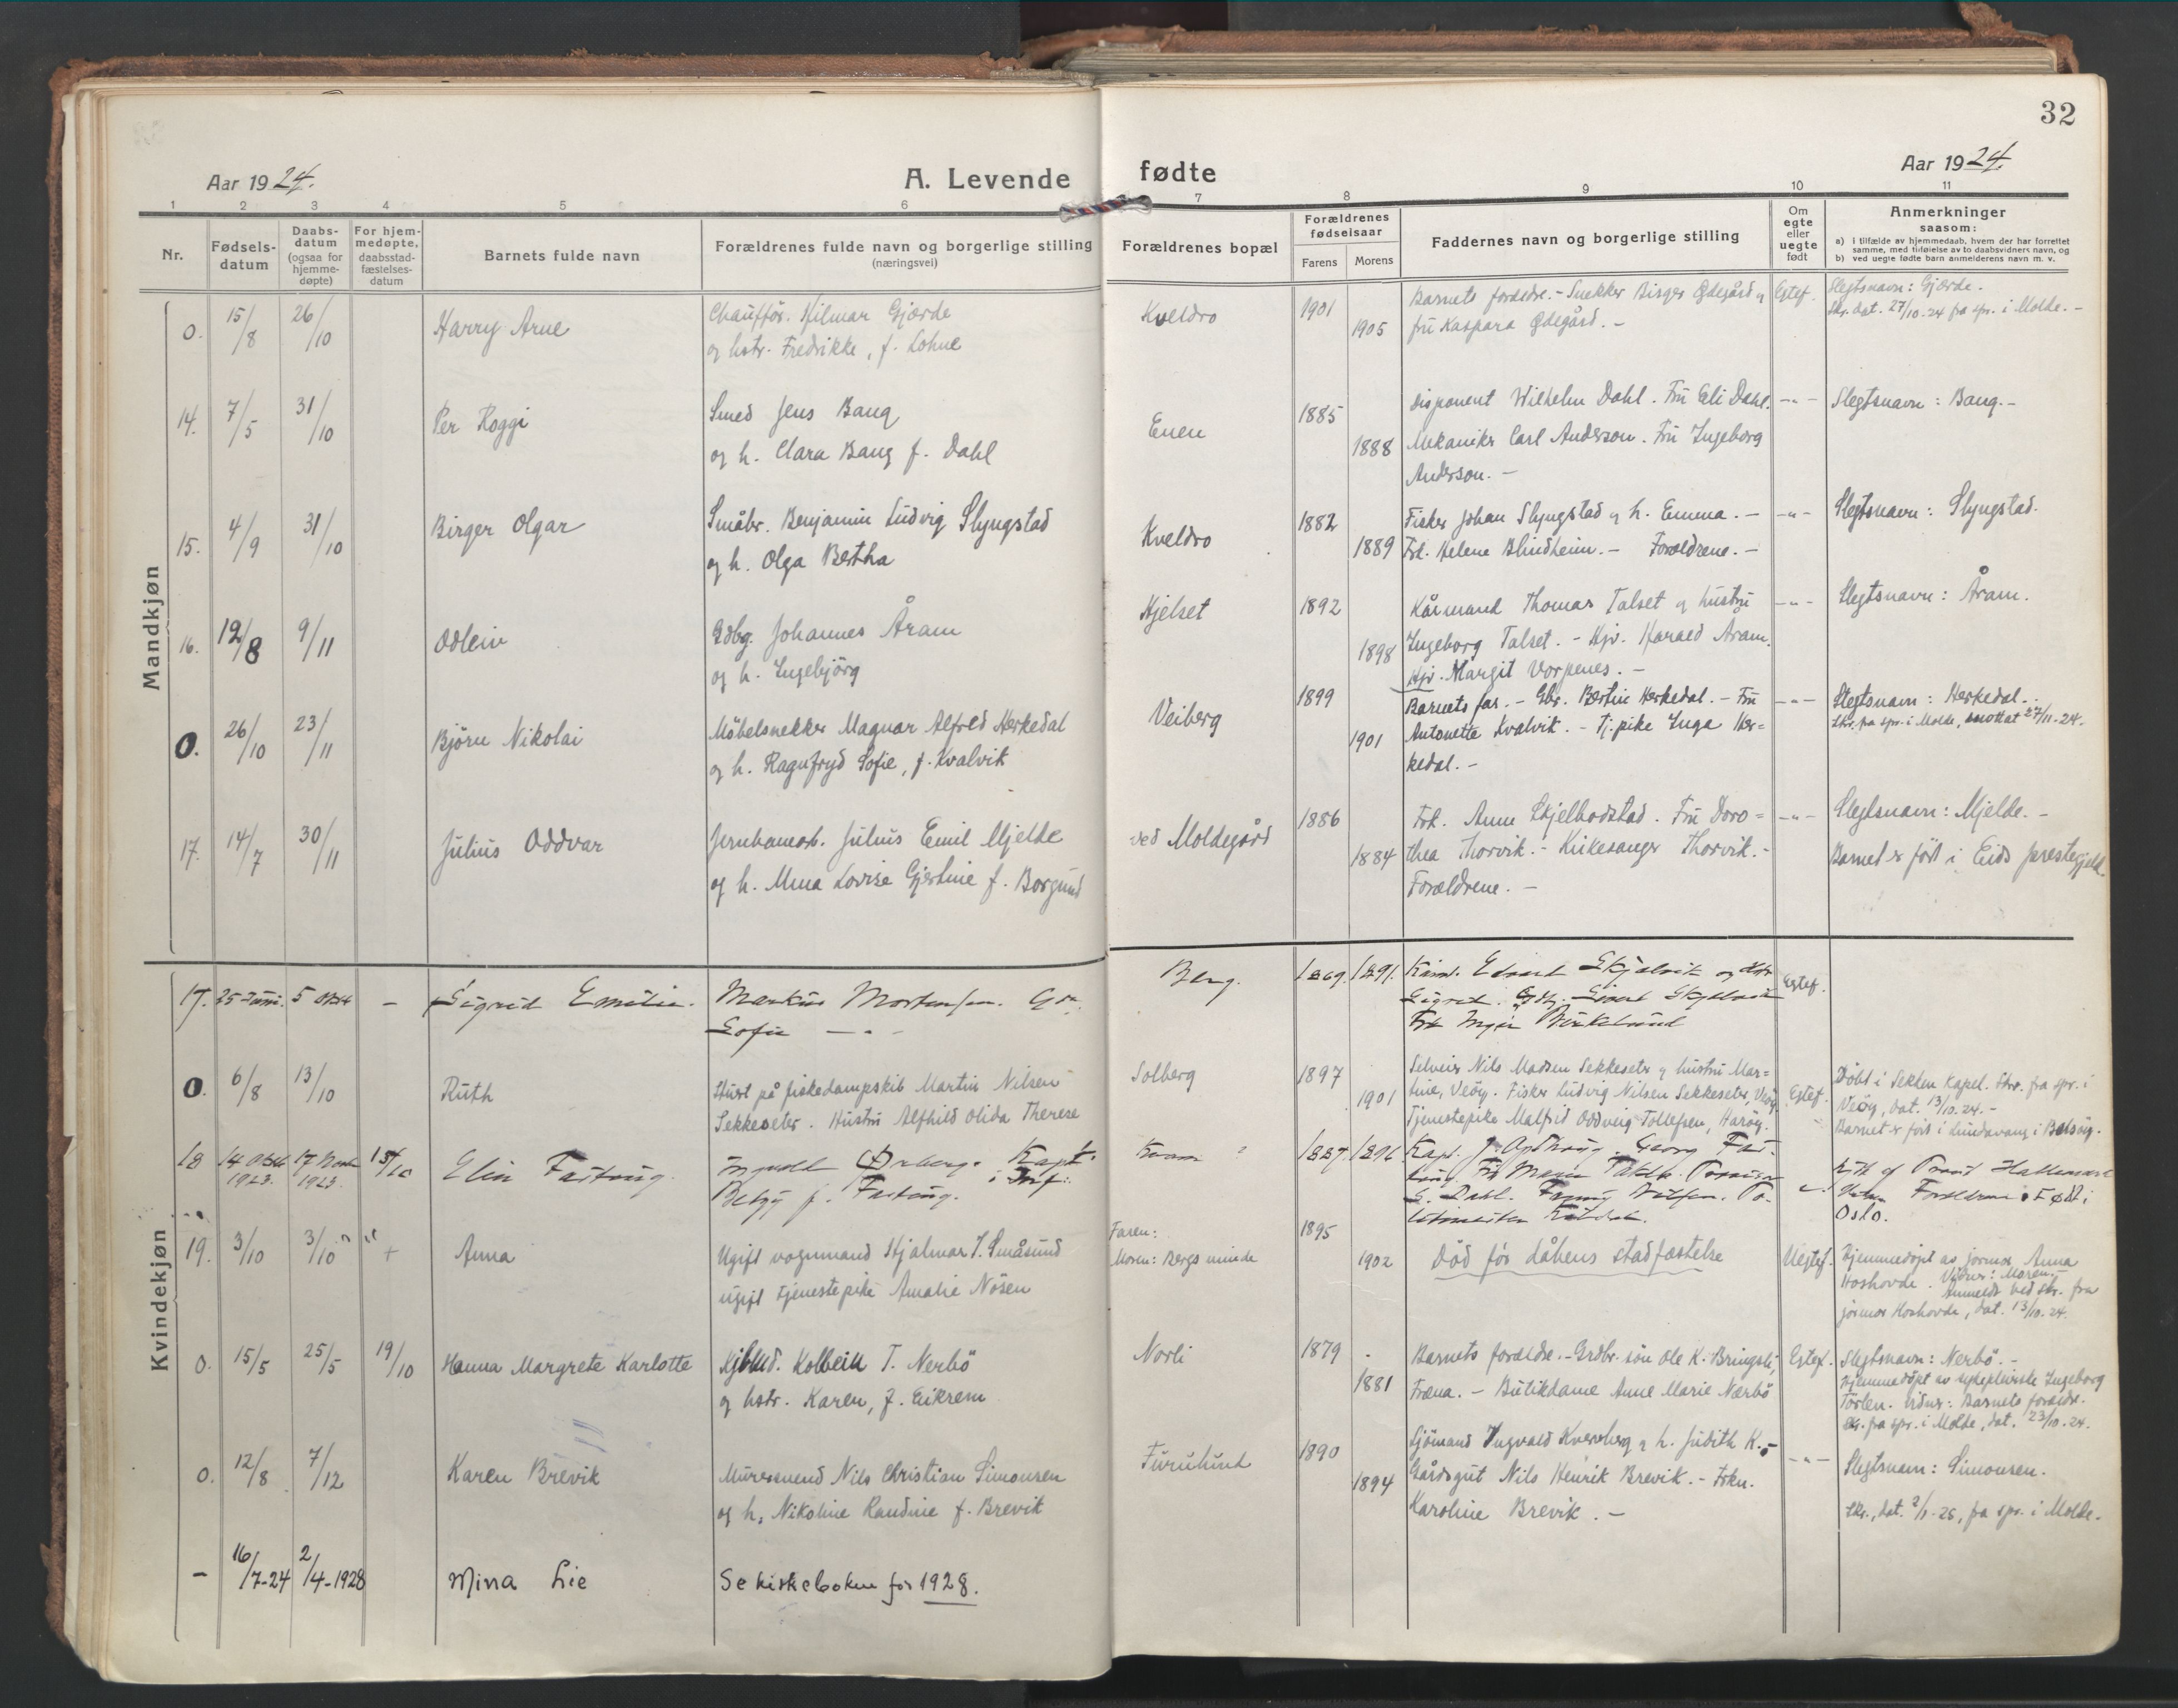 32
Aar 1924.
A. Levende
fødte
Aar 1924.
1 2 3 4 5 6 7 8 9 10 11
Nr.
Fødsels-
datum
Daabs-
datum
(ogsaa for
hjemme-
døpte)
For hjem-
medøpte,
daabsstad-
fæstelses-
datum
Barnets fulde navn
Forældrenes fulde navn og borgerlige stilling
(næringsvei)
Forældrenes bopæl
Forældrenes
fødselsaar
Farens
Morens
Faddernes navn og borgerlige stilling
Om
egte
eller
uegte
født
Anmerkninger
saasom:
a) i tilfælde av hjemmedaab, hvem der har forrettet
samme, med tilføielse av to daabsvidners navn, og
b) ved uegte fødte barn anmelderens navn m. v.
Mandkjøn
0. 15/8 26/10 Harry Arne
Chauffør. Hilmar Gjærde
og hstr. Fredrikke, f. Lohne
Kveldro 1901 1905
Barnets foreldre. - Snekker Birger Ødegård og
fru Kaspara Ødegård. -
Egtef.
Slegtsnavn: Gjærde.
Skr. dat. 27/10-24 fra spr. i Molde. -
14. 7/5 31/10 Per Roggi
Smed Jens Bang
og h. Clara Bang f. Dahl
Enen 1885 1888
Disponent Wilhelm Dahl. Fru Eli Dahl.
Mekaniker Carl Anderson. Fru Ingeborg
Anderson. -
-"-
Slegtsnavn: Bang. -
15. 4/9 31/10 Birger Olgar
Småbr. Benjamin Ludvig Slyngstad
og h. Olga Bertha
Kveldro 1882 1889
Fisker Johan Slyngstad og h. Emma. -
Frk. Helene Blindheim. - Forældrene. -
-"-
Slegtsnavn: Slyngstad.
16. 12/8 9/11 Odleiv
Gdbg. Johannes Åram
og h. Ingebjörg
Hjelset 1892 1898
Kårmand Thomas Talset og hustru
Ingeborg Talset. - Hjv. Harald Åram.
Hjv. Margit Vorpenes. -
-"-
Slegtsnavn: Åram.
0. 26/10 23/11 Björn Nikolai
Möbelsnekker Magnar Alfred Herkedal
og h. Ragnfryd Sofie, f. Kvalvik
Veiberg 1899 1901
Barnets far. - Gbr. Bertine Herkedal. - Fru
Antonette Kvalvik. - Tj. pike Inga Her=
kedal. -
-"-
Slegtsnavn: Herkedal. -
Skr. fra spr. i Molde, mottat 27/11-24.
17. 14/7 30/11 Julius Oddvar
Jernbanearb. Julius Emil Mjelde
og h. Anna Lovise Gjertine f. Borgund
ved Moldegård 1886 1884
Frk. Anne Skjelbodstad. Fru Doro=
thea Thorvik. - Kirkesanger Thorvik. -
Forældrene. -
-"-
Slegtsnavn: Mjelde. -
Barnet er født i Eids prestegjeld.
Kvindekjøn
17. 25 Juni. 5 Oktbr - Sigrid Emilie.
Markus Mortensen.
Sofie -"-
Berg. 1869. 1891.
Edvard Skjelvik og
Sigrid.
Frk Birkelund
Egtef.
0. 6/8 13/10 Ruth
Stuert på fiskedampskib Martin Nilsen
Sekkeseter. Hustru Alfhild Olida Therese
Solberg 1897 1901
Selveier Nils Madsen Sekkeseter og hustru Mar=
tine, Veöy. Fisker Ludvig Nilsen Sekkeseter, Veöy.
Tjenestepike Malfrid Oddveig Tollefsen, Haröy.
Egtef.
Döbt i Sekken Kapel. Skr. fra spr. i
Veöy, dat. 13/10.24. -
Barnet er födt i Lindavang i Bolsöy.
18 14 Oktbr 1923. 17 Novbr 1923. Elin Fasting.
Kapt. i Inf:
Betzy f. Fasting.
Kvam 1887. 1896.
Kapt. Georg Fas-
ting.
S. Dahl. Fanny
Forældrene. Født i
Oslo.
19. 3/10 3/10 + Anna
Ugift vognmand Hjalmar J. Småsund
ugift tjenestepike Amalie Nösen
Faren:
Moren: Bergs minde
1895 1902
Död för dåbens stadfæstelse
Uegtef.
Hjemmedöpt av jormor Anna
Hoshovde. Vidner: Moren. -
Anmeldt ved skr. fra
jormor Hoshovde, dat. 13/10.24.
0. 15/5 25/5 19/10 Hanna Margrete Karlotte
Kjbmd. Kolbein T. Nerbö
og hstr. Karen, f. Eikrem
Norli 1879 1881
Barnets forældre. - Grdbr. sön Ole K. Bringsli,
Fræna. - Butikdame Anne Marie Nærbö
Egtef.
Slegtsnavn: Nerbö. -
Hjemmedöpt av sykepleierske Ingeborg
Torlen. Vidner: Barnets forældre.
Skr. fra spr. i Molde, dat. 23/10.24.
0. 12/8 7/12 Karen Brevik
Murersvend Nils Christian Simonsen
og h. Nikoline Randine f. Brevik
Furulund 1890 1894
Sjömand Ingvald Kversberg og h. Judith K. -
Gårdsgut Nils Henrik Brevik. - Frkn.
Karoline Brevik. -
-"-
Slegtsnavn: Simonsen.
Skr., dat. 2/1-25, fra spr. i Molde.
- 16/7-24 2/4-1928 Mina Lie
Se kirkeboken for 1928.